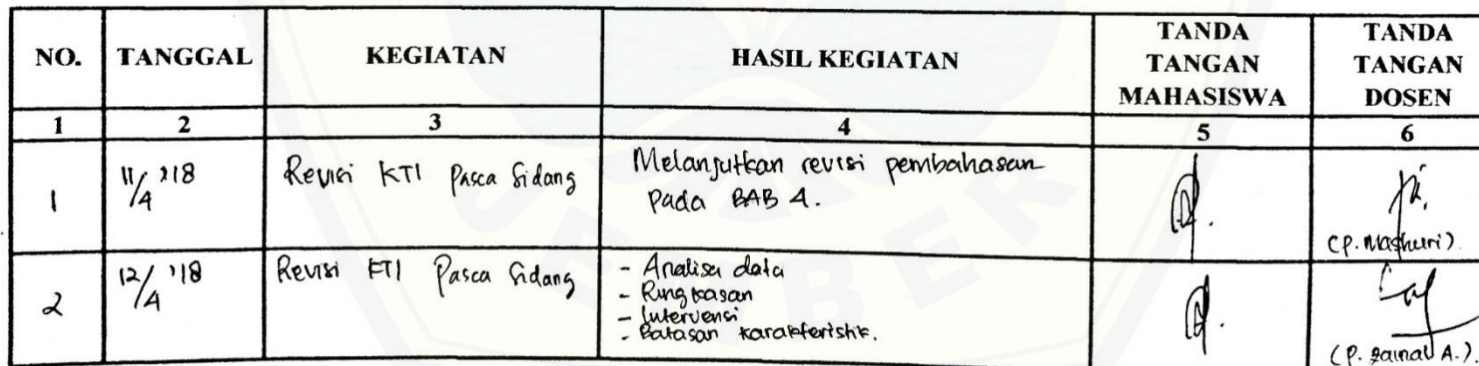 NO. TANGGAL KEGIATAN HASIL KEGIATAN TANDA TANGAN MAHASISWA TANDA TANGAN DOSEN
1 2 3 4 5 6
1 11/4 '18 Revisi KTI Pasca Sidang Melanjutkan revisi pembahasan
pada BAB 4.
(P. Mashuri).
2 12/4 '18 Revisi KTI Pasca Sidang - Analisa data
- Ringkasan
- Intervensi
- Batasan karakteristik.
(P. Zainal A.).
JEMBER